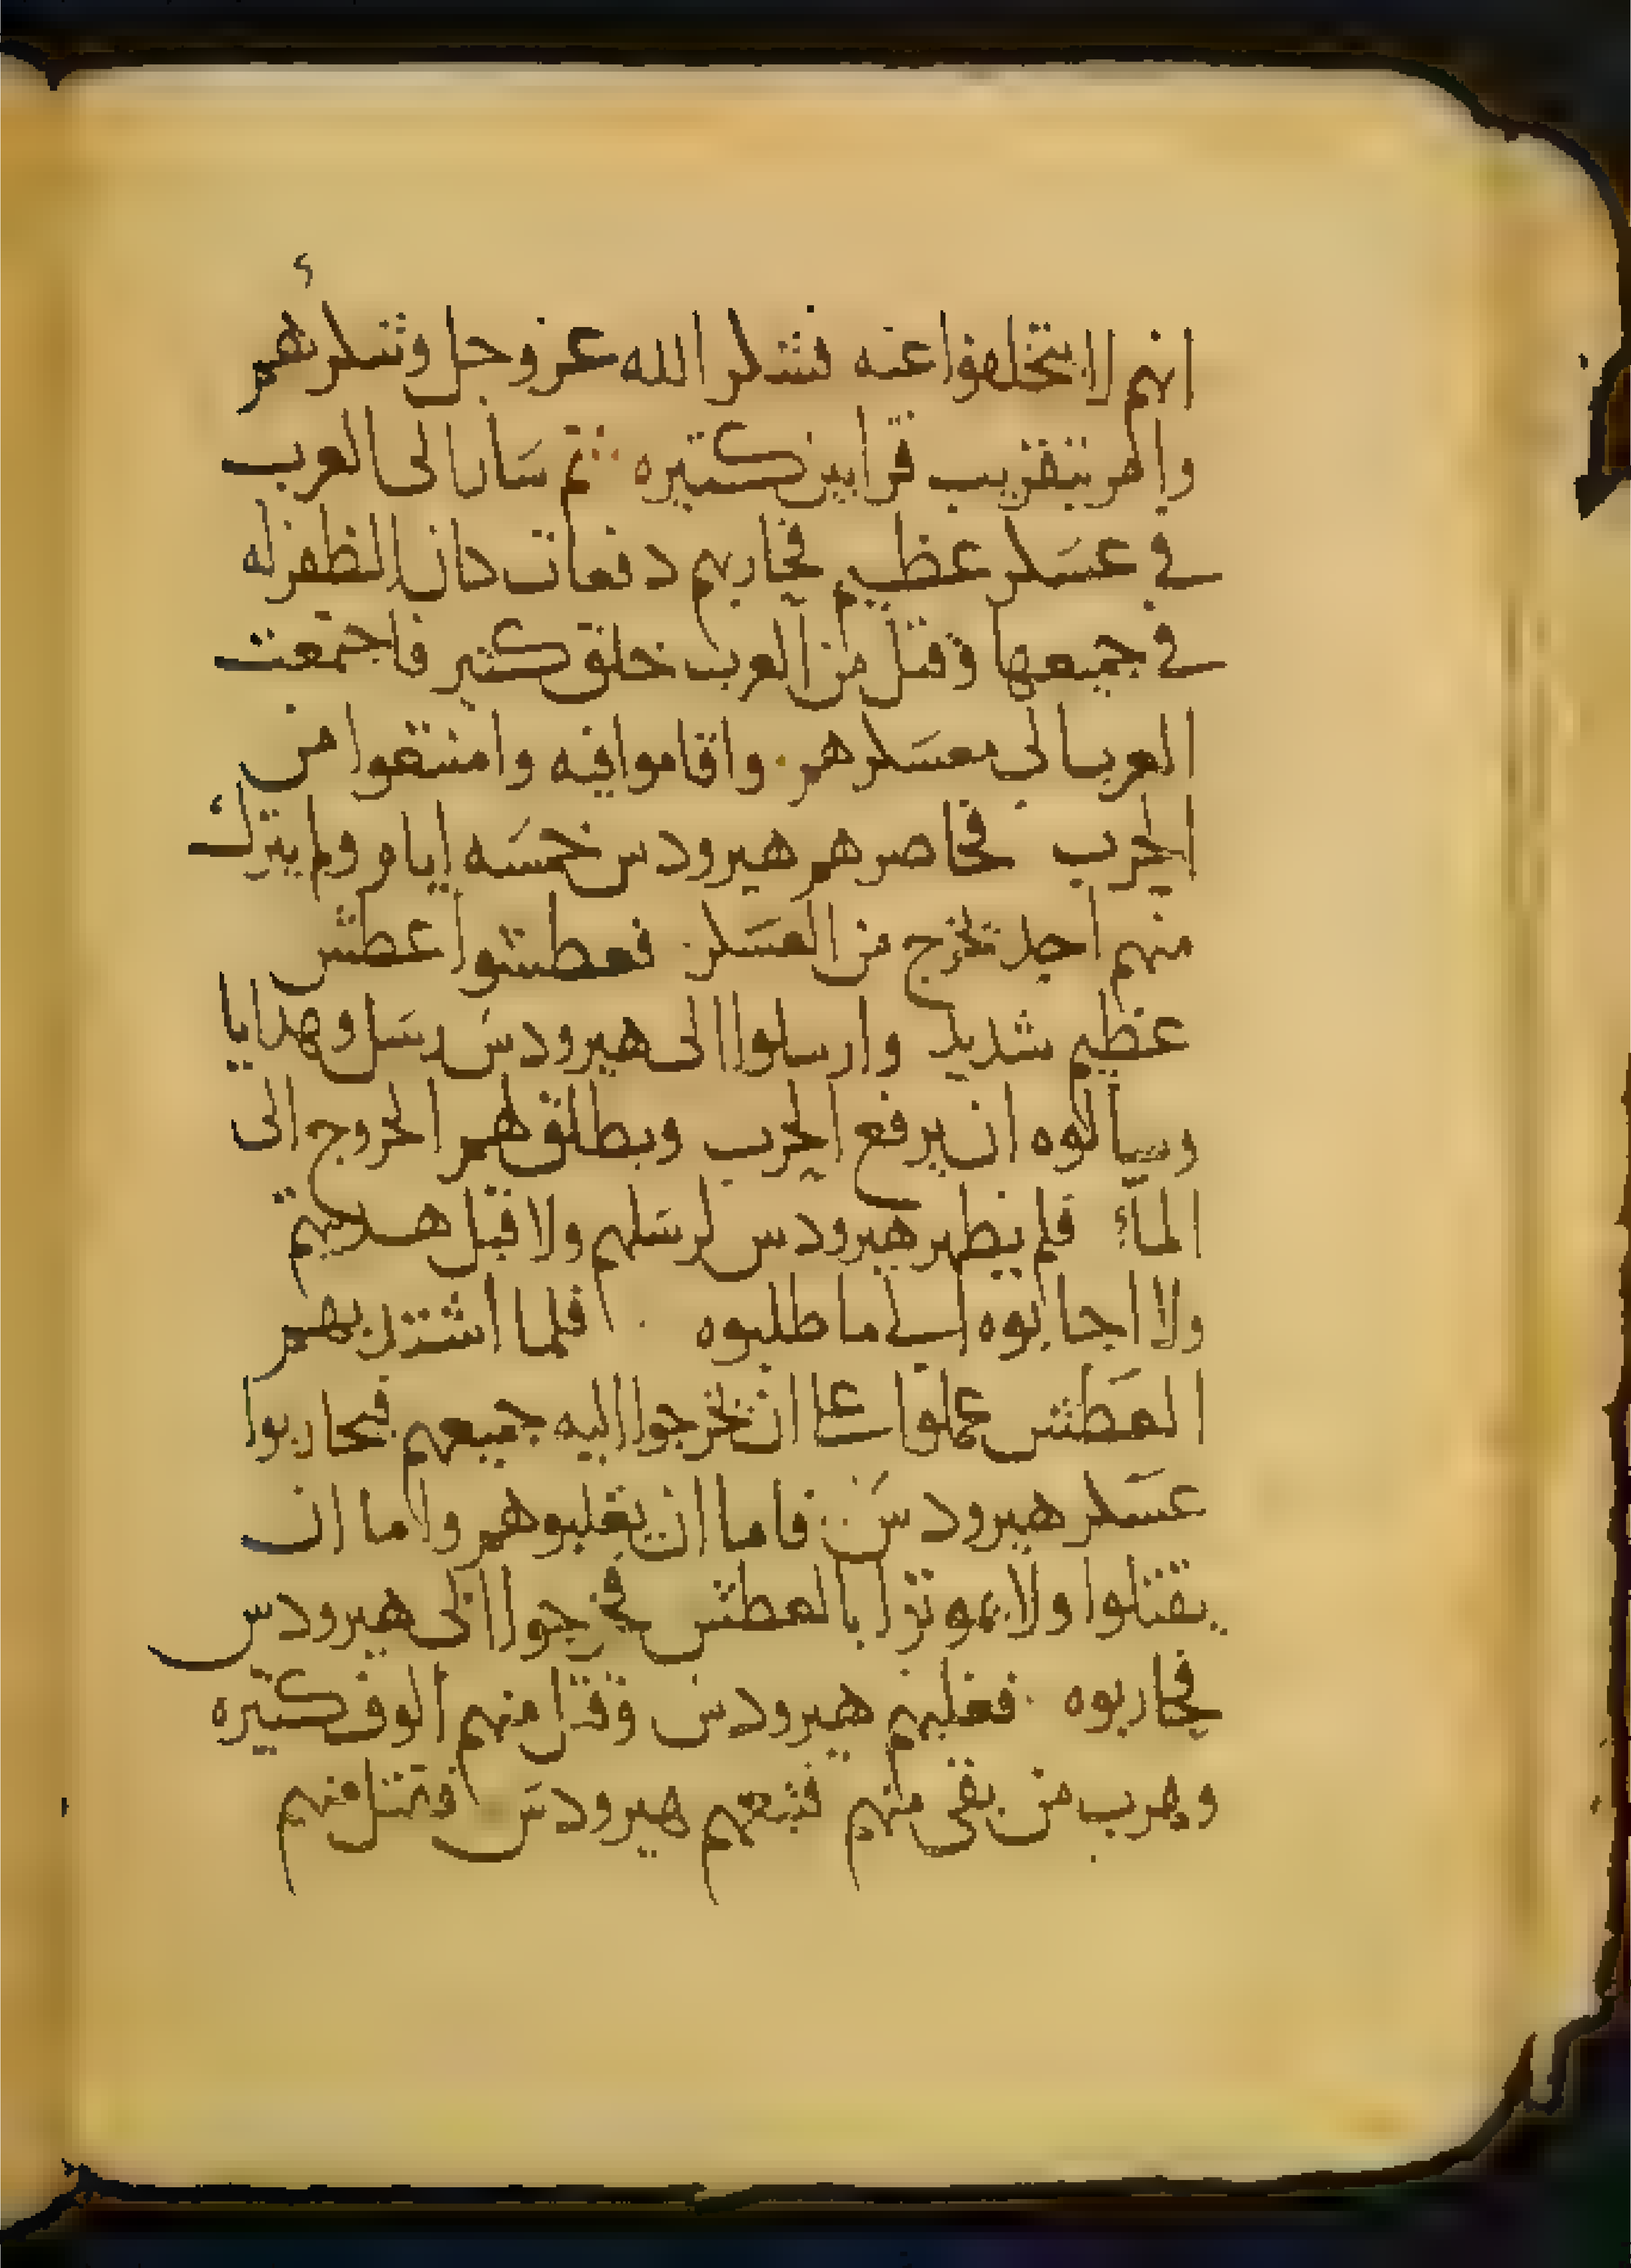 انهم لا يتخلفوا عنه فشكر الله عز وجل وشكرهم
وامر بتقريب قرابين كثيره ثم سار الى العرب
في عسكر عظيم فحاربهم دفعات كان الظفر له
في جميعها وقتل من العرب خلق كثير فاجتمعت
العرب الى معسكرهم واقاموا فيه وامتنعوا من
الحرب فحاصرهم هيرودس خمسه ايام ولم يترك
منهم احد يخرج من العسكر فعطشوا عطش
عظيم شديد وارسلوا الى هيرودس رسل وهدايا
وسألوه ان يرفع الحرب ويطلق لهم الخروج الى
الماء فلم ينظر هيرودس لرسلهم ولا قبل هداياهم
ولا اجابوه الى ما طلبوه فلما اشتد بهم
العطش عملوا على ان يخرجوا اليه جميعهم فيحاربوا
عسكر هيرودس فاما ان يغلبوهم واما ان
يقتلوا ولا يموتوا بالعطش فخرجوا الى هيرودس
فحاربوه فغلبهم هيرودس وقتل منهم الوف كثيره
وهرب من بقى منهم فتبعهم هيرودس فقتل منهم